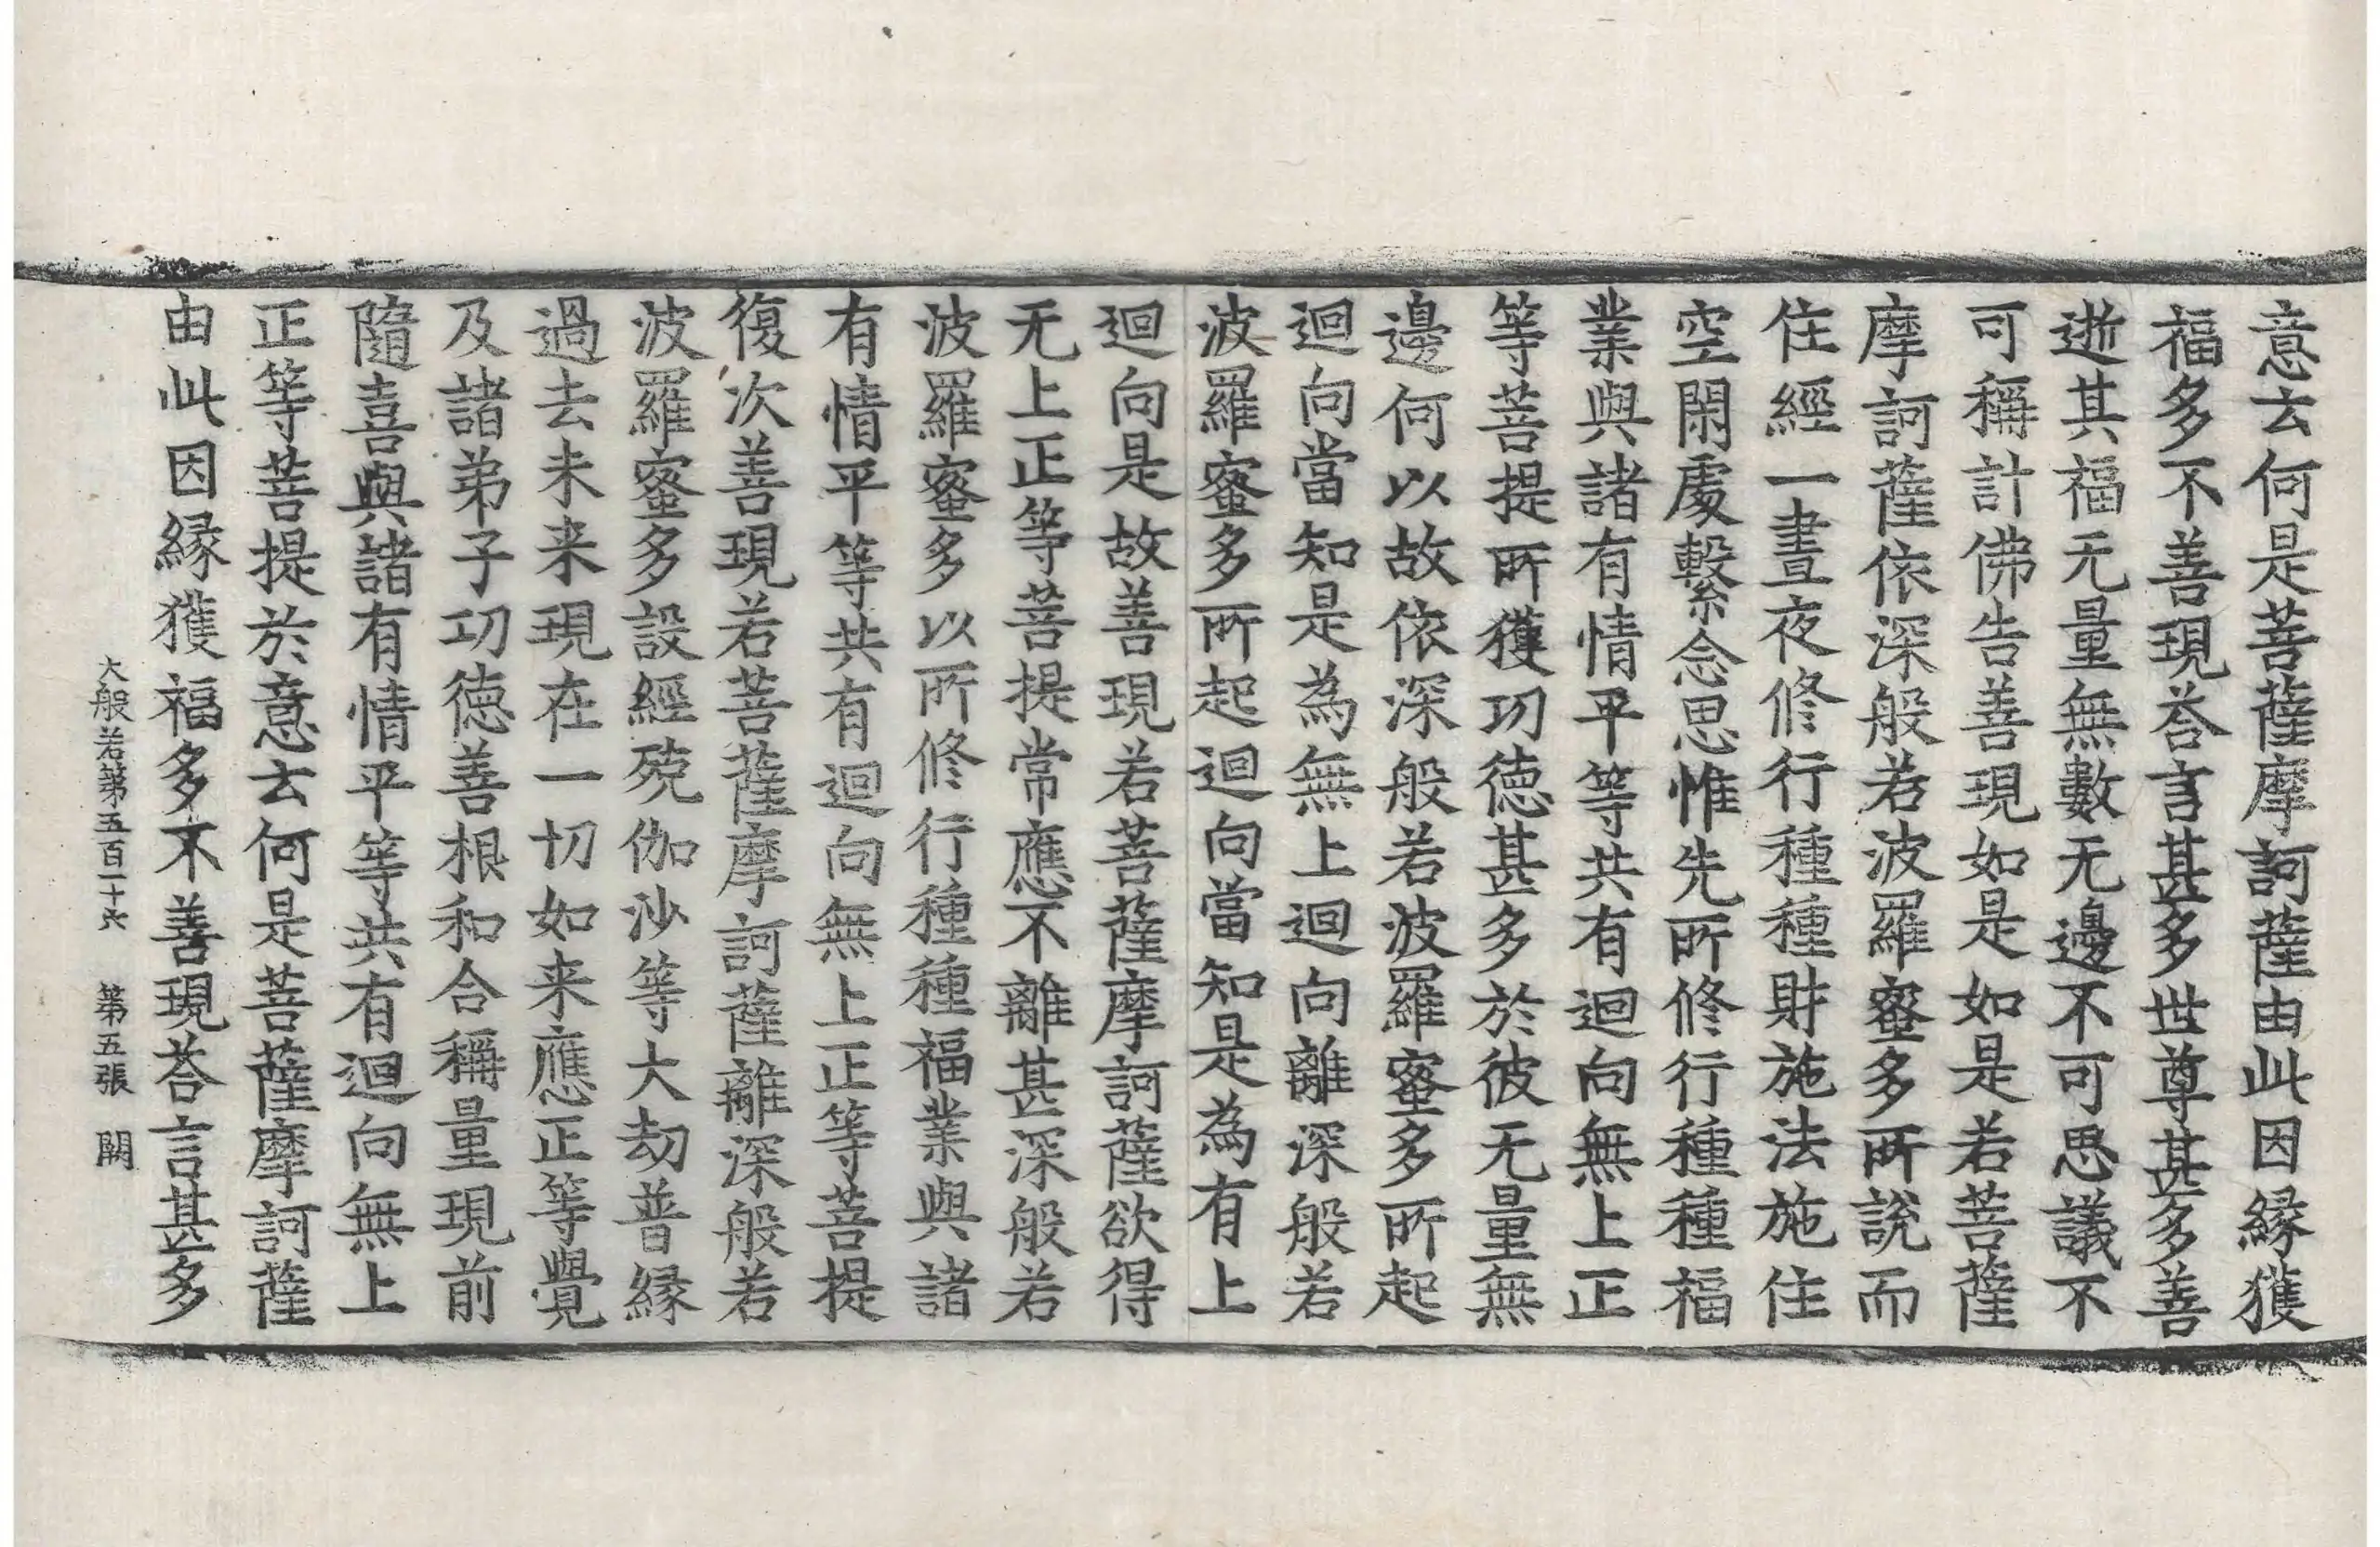 意云何是菩薩摩訶薩由此因緣獲
福多不善現荅言甚多世尊甚多善
逝其福无量無數无邊不可思議不
可稱計佛告善現如是如是若菩薩
摩訶薩依深般若波羅蜜多所說而
住經一晝夜修行種種財施法施住
空閑處繫念思惟先所修行種種福
業與諸有情平等共有迴向無上正
等菩提所獲功德甚多於彼无量無
邊何以故依深般若波羅蜜多所起
迴向當知是為無上迴向離深般若
波羅蜜多所起迴向當知是為有上
迴向是故善現若菩薩摩訶薩欲得
无上正等菩提常應不離甚深般若
波羅蜜多以所修行種種福業與諸
有情平等共有迴向無上正等菩提
復次善現若菩薩摩訶薩離深般若
波羅蜜多設經殑伽沙等大劫普緣
過去未来現在一切如来應正等覺
及諸弟子功德善根和合稱量現前
隨喜與諸有情平等共有迴向無上
正等菩提於意云何是菩薩摩訶薩
由此因緣獲福多不善現荅言甚多
大般若第五百一十六 第五張 闕